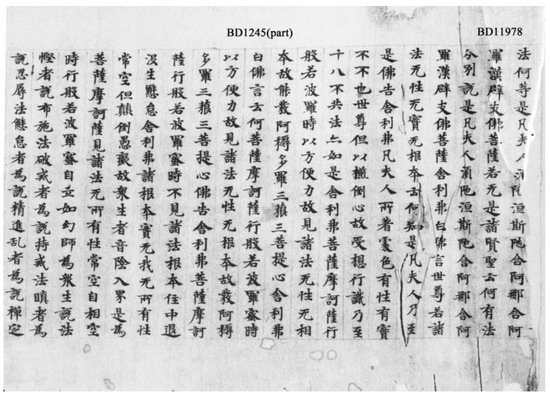 BD1245(part)
BD11978
法何等是凡夫人湏陁洹斯陁含阿那含阿
羅漢辟支佛菩薩若无是諸賢聖云何有法
分別說是凡夫人湏陁洹斯陁含阿那含阿
羅漢辟支佛菩薩舍利弗白佛言世尊若諸
法无性无實无根本云何知是凡夫人乃至
是佛告舍利弗凡夫人所著處色有性有實
不不也世尊但以顛倒心故受想行識乃至
十八不共法亦如是舍利弗菩薩摩訶薩行
般若波羅時以方便力故見諸法无性无根
本故能發阿耨多羅三藐三菩提心舍利弗
白佛言云何菩薩摩訶薩行般若波羅蜜時
以方便力故見諸法无性无根本故發阿耨
多羅三藐三菩提心佛告舍利弗菩薩摩訶
薩行般若波羅蜜時不見諸法根本住中退
没生懈怠舍利弗諸根本實无我无所有性
常空但顛倒愚癡故衆生著陰入界是為
菩薩摩訶薩見諸法无所有性常空自相空
時行般若波羅蜜自立如幻師為衆生說法
慳者說布施法破戒者為說持戒法瞋者為
說忍辱法懈怠者為說精進乱者為說禪定